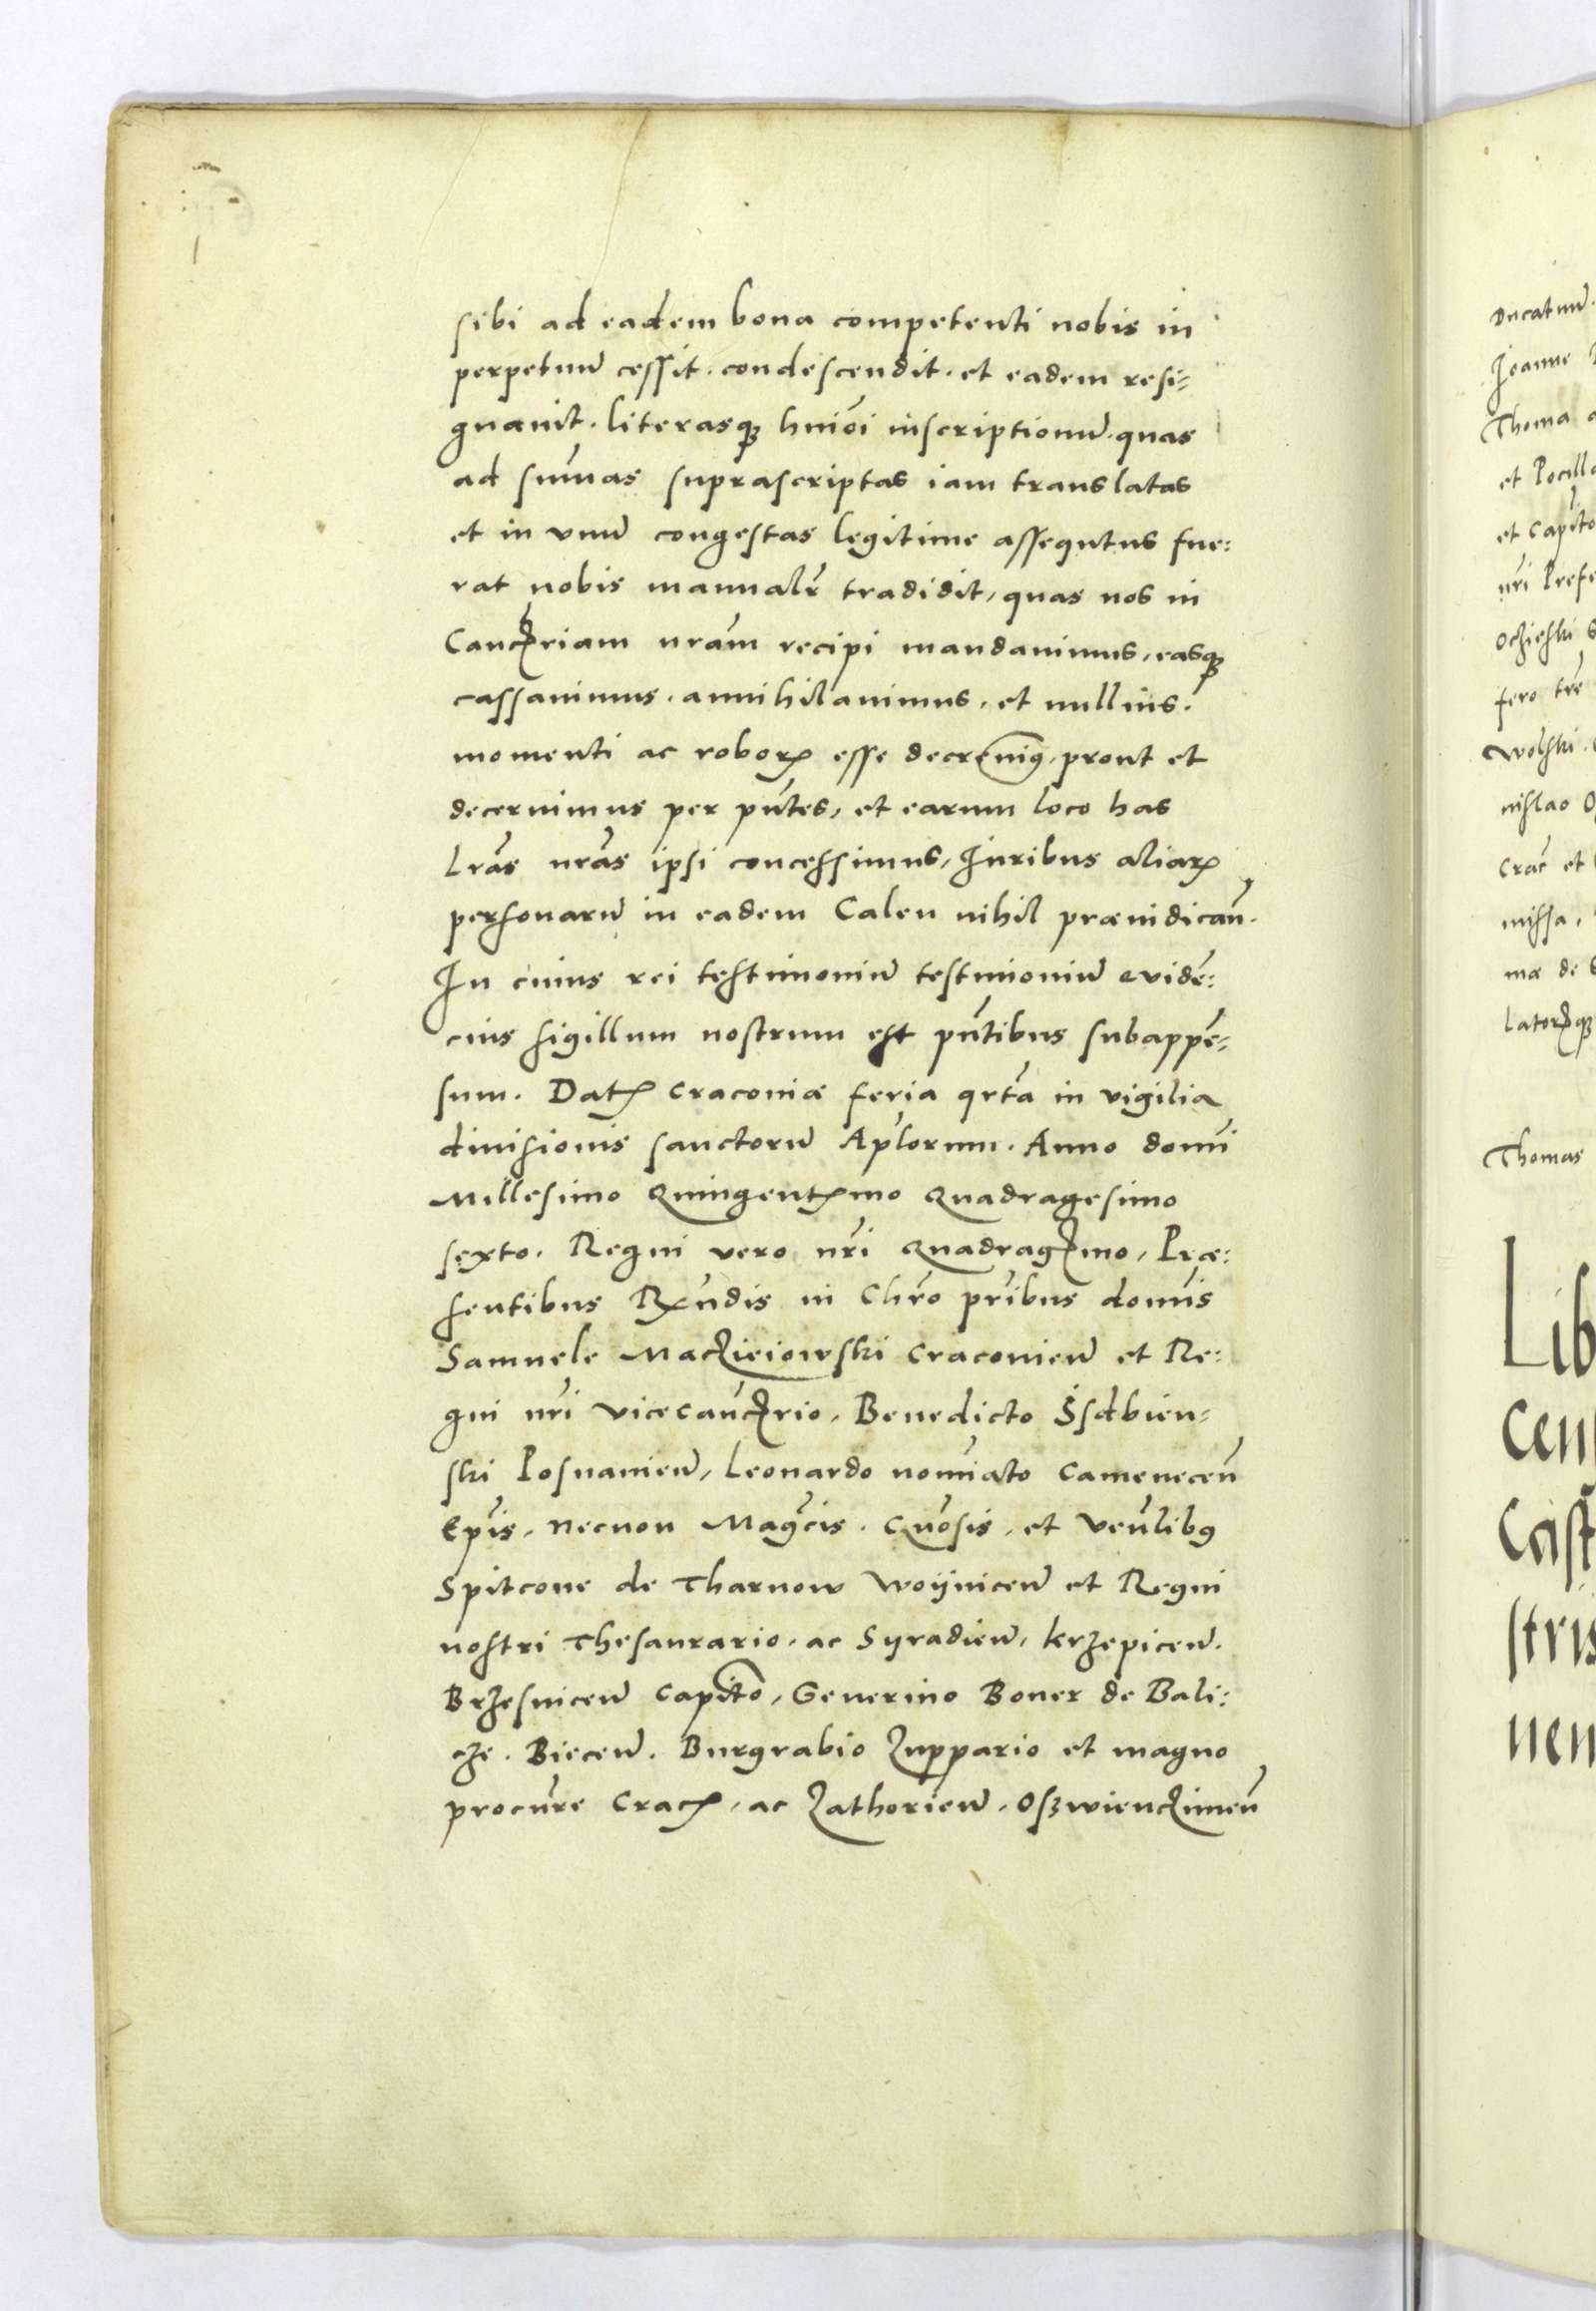 sibi ad eadem bona competenti nobis in
perpetuū cessit. condescendit. et eadem resi=
gnauit. literasq₃ hmōi inscriptionū. quas
ad sum̄as suprascriptas iam translatas
et in vnū congestas legitime assequtus fue:
rat nobis manualr̄ tradidit, quas nos in
Cancꝛriam nr̄am recipi mandauimus, easq₃
cassauimus. annihilauimus, et nullius.
momenti ac roboꝝ esse decreuimꝰ, prout et
decernimus per pn̄tes, et earum loco has
Lr̄as nr̄as ipsi concessimus, Juribus aliaꝝ
personarū in eadem Calen nihil præiudican̄.
In cuius rei testimoniū testimoniū euidē:
cius sigillum nostrum est pn̄tibus subappē=
sum. Datꝝ Cracouiæ feria qrtā in vigilia
diuisionis sanctorū Apl̄orum. Anno domī
Millesimo Quingentꝝmo Quadragesimo
sexto. Regni vero nr̄i Quadragꝛmo, Præ:
sentibus Rꝛn̄dis in Chr̄o pr̄ibus domīs
Samuele Maczieiowski Cracouien̄ et Re:
gni nr̄i Vicecancꝛrio, Benedicto Isdbien=
ski Posnanien̄, Leonardo nomīato Camenecen̄
Epīs, necnon Magcīs. Gn̄osis, et Ven̄libꝰ
Spitcone de Tharnow Woÿnicen̄ et Regni
nostri Thesaurario, ac Syradien̄, Krzepicen̄.
Brzesnicen̄ Capitō, Seuerino Boner de Bali:
cze. Biecen̄. Burgrabio Zuppario et magno
procūre Cracꝝ, ac Zathorien̄, Oszwienczimen̄
Ducatuū
Joanne
Thoma
et
et Capito
nr̄i Prefe
Oczieski
fero trē
Wolski
nislao
Crac̄ et
missa,
mæ de
Latorꝛq₃
Thomas
Lib
cen
Cast
stris
nen